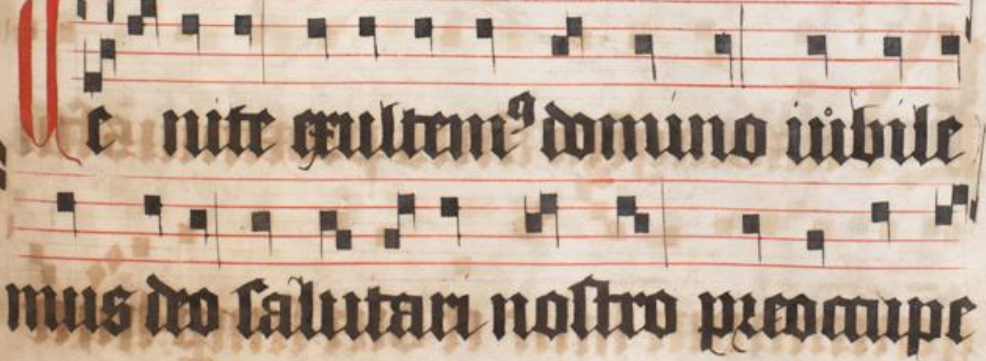 Ve nite exultemꝰ domino iubile
mus deo salutari nostro preoccupe